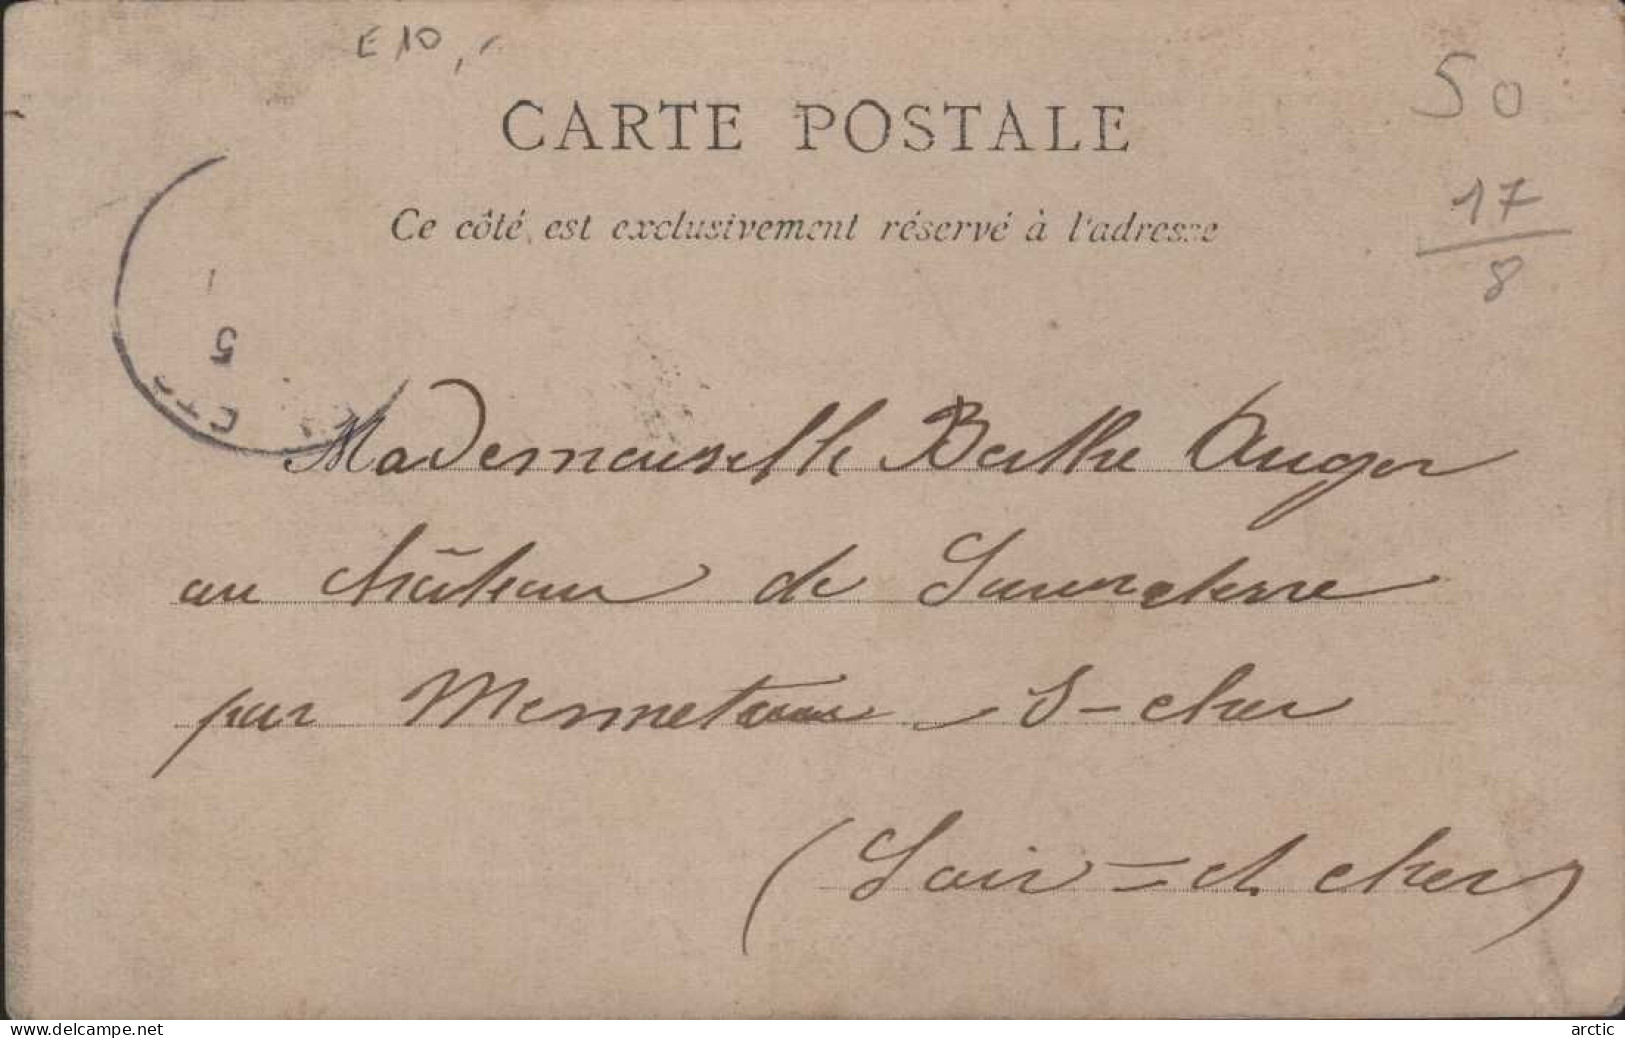 E10,
50
CARTE POSTALE
17
Ce côté est exclusivement réservé à l'adresse
8
5
Mademoiselle Berthe Auger
au château de Sauveterre
par Mennetou S-cher
(Loir-et cher)
www.delcampe.net
arctic